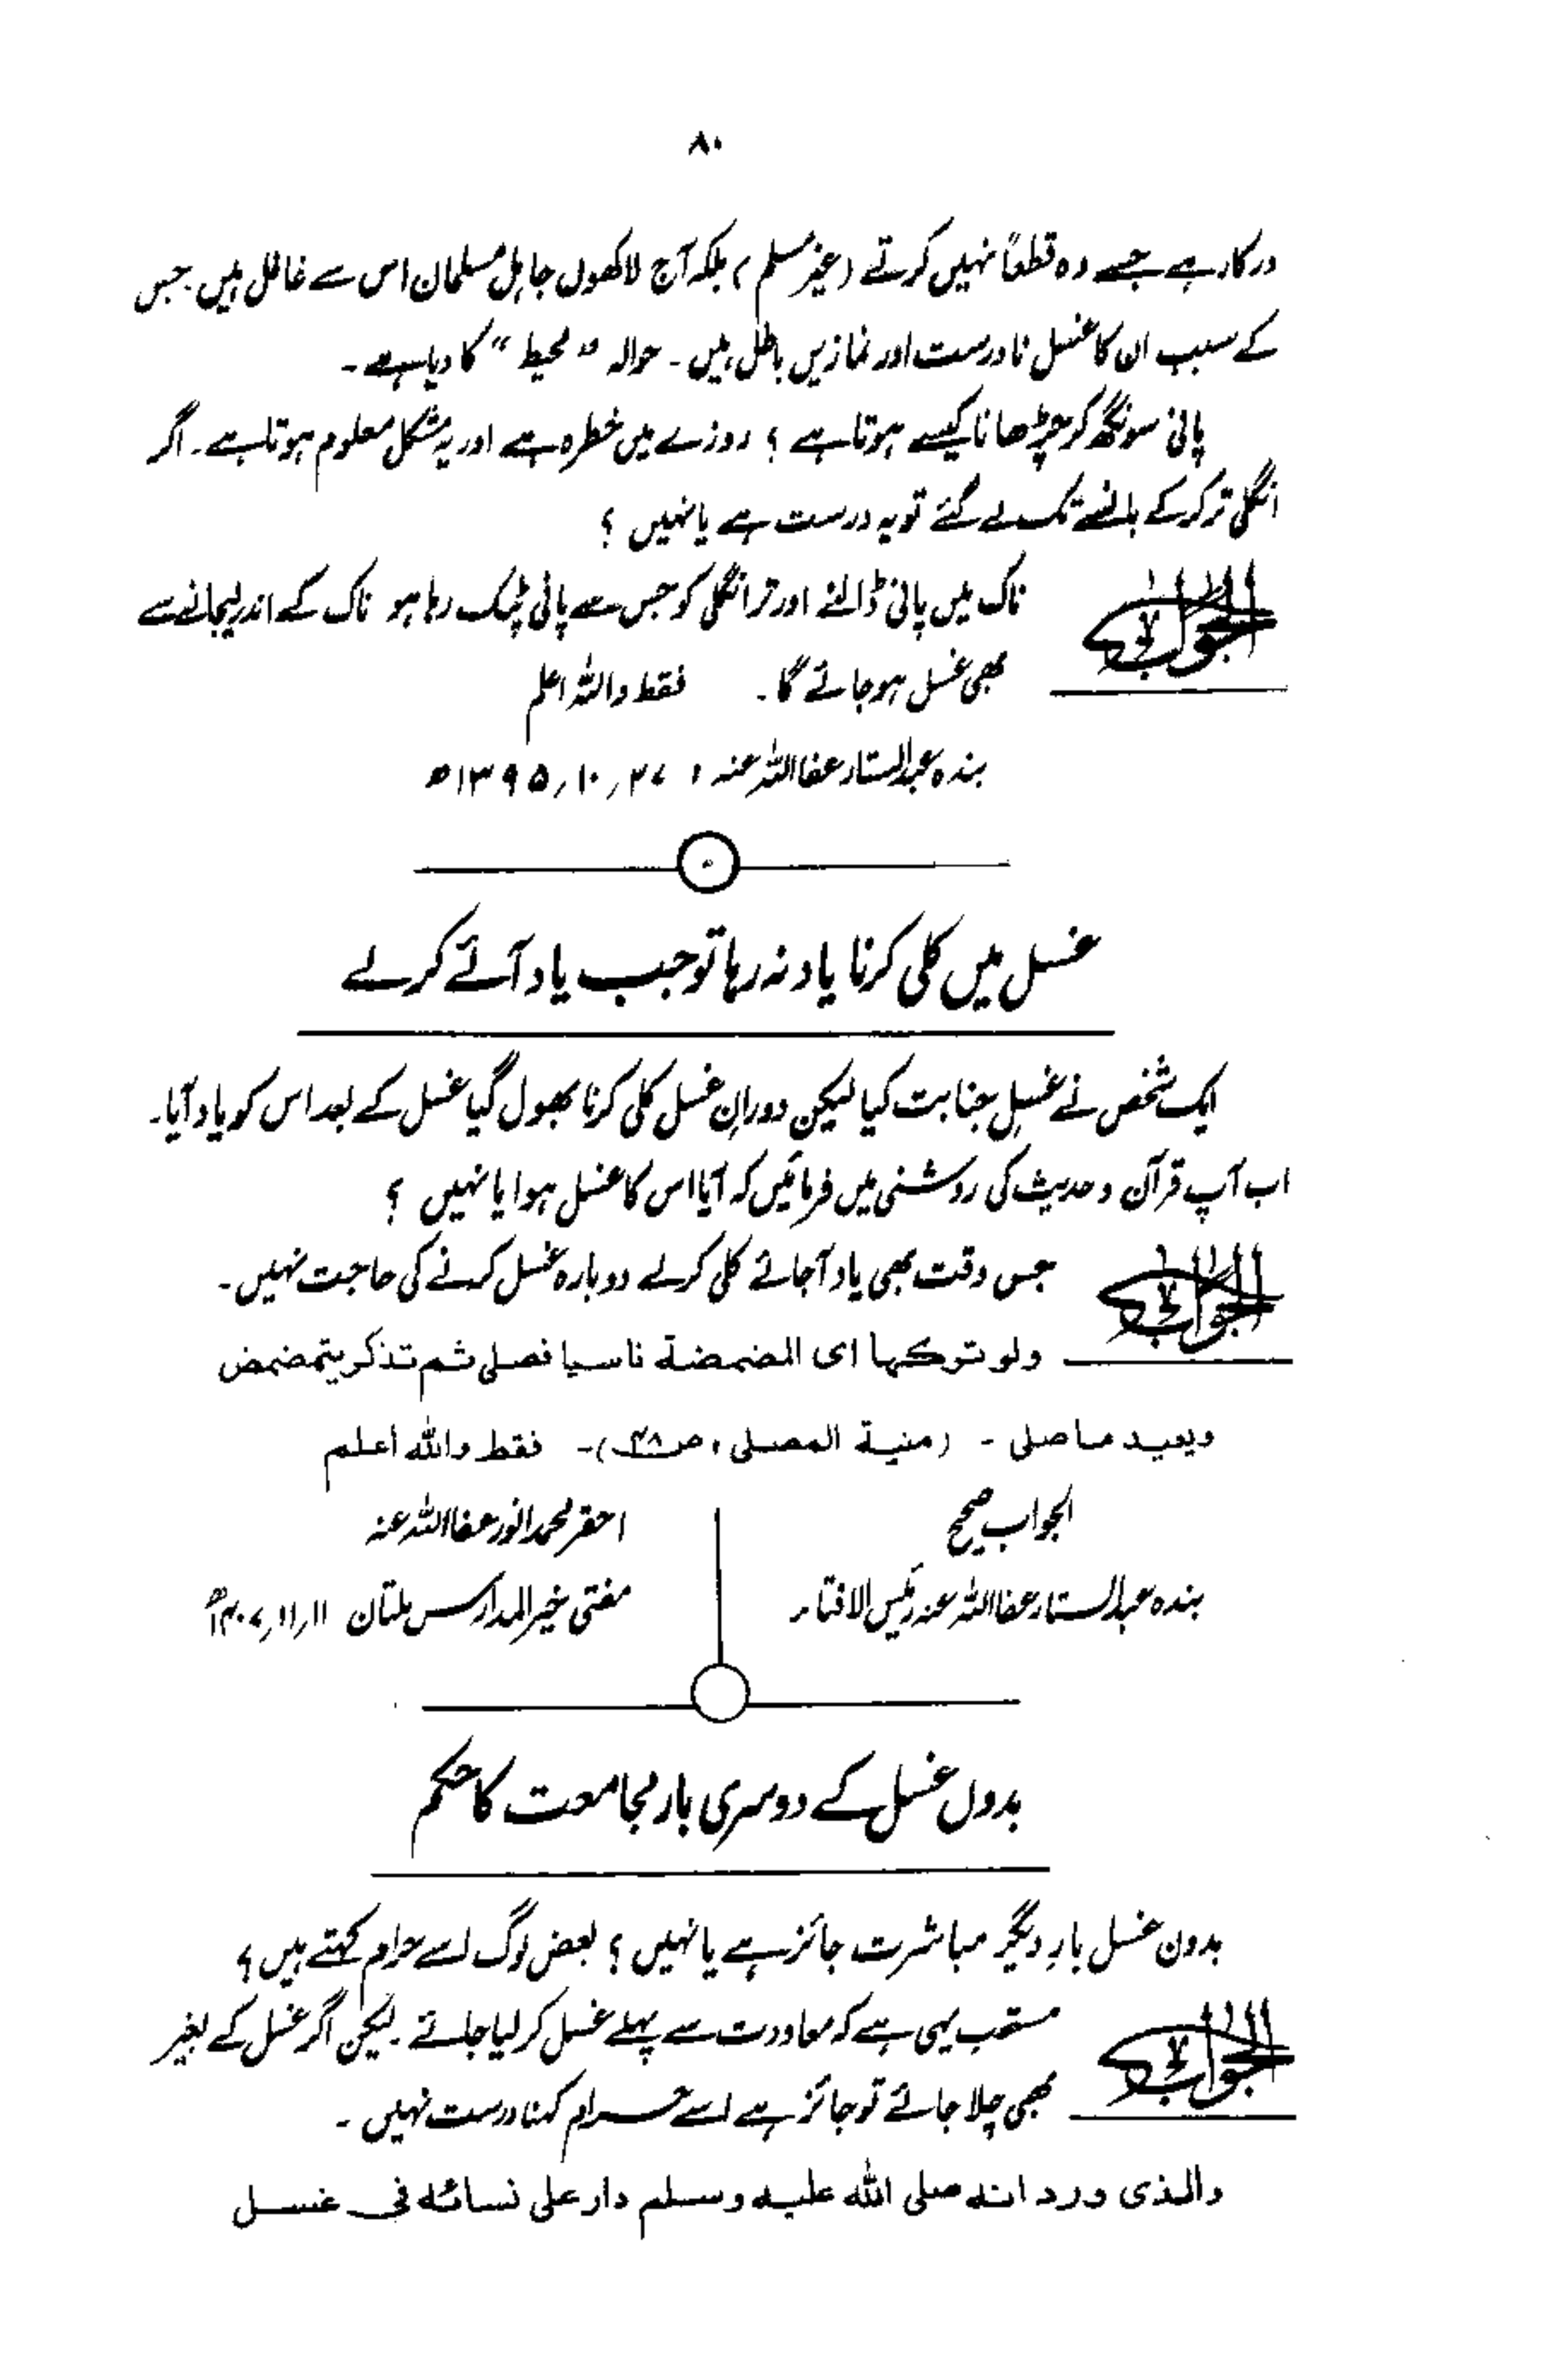 ۸۰
درکار ہے جسے وہ قطعاً نہیں کرتے (غیر مسلم) بلکہ آج لاکھوں جاہل مسلمان اس سے غافل ہیں۔ جس
کے سبب ان کا غسل نادرست اور نمازیں باطل ہیں۔ حوالہ " محیط " کا دیا ہے۔
پانی سونگھ کر چڑھانا کیسے ہوتا ہے ؟ روزے میں خطرہ ہے اور یہ مشکل معلوم ہوتا ہے۔ اگر
انگلی تر کر کے بانسے تک لے گئے تو یہ درست ہے یا نہیں ؟
الجواب
ناک میں پانی ڈالنے اور تر انگلی کو جس سے پانی ٹپک رہا ہو ناک کے اندر لیجانے سے
بھی غسل ہو جائے گا۔ فقط واللہ اعلم
بندہ عبدالستار عفا اللہ عنہ ، ۲۷ ر ۱۰ ر ۱۳۹۵ ھ
غسل میں کلی کرنا یاد نہ رہا تو جب یاد آئے کرلے
ایک شخص نے غسلِ جنابت کیا لیکن دورانِ غسل کلی کرنا بھول گیا غسل کے بعد اس کو یاد آیا۔
اب آپ قرآن و حدیث کی روشنی میں فرمائیں کہ آیا اس کا غسل ہوا یا نہیں ؟
الجواب
جس وقت بھی یاد آجائے کلی کرلے دوبارہ غسل کرنے کی حاجت نہیں۔
ولو تركها اى المضمضة ناسيا فصلى ثم تذكر يتمضمض
ويعيد ما صلى - (منية المصلى ، ص۳۸)- فقط واللہ اعلم
الجواب صحیح
بندہ عبدالستار عفا اللہ عنہ رئیس الافتاء
احقر محمد انور عفا اللہ عنہ
مفتی خیر المدارس ملتان ۱۱ ر ۱۱ ر ۱۴۰۷ھ
بدوں غسل کے دوسری بار مجامعت کا حکم
بدون غسل بارِ دیگر مباشرت جائز ہے یا نہیں ؟ بعض لوگ اسے حرام کہتے ہیں ؟
الجواب
مستحب یہی ہے کہ معاودت سے پہلے غسل کر لیا جائے۔ لیکن اگر غسل کے بغیر
بھی چلا جائے تو جائز ہے اسے حرام کہنا درست نہیں۔
والذى ورد انه صلى الله عليه وسلم دار على نسائه فى غسل